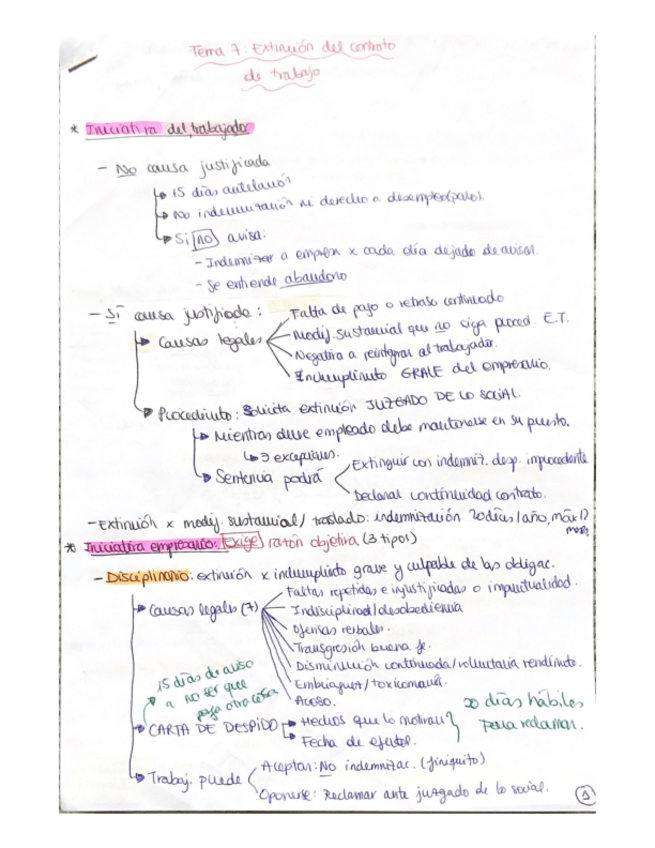 Tema 7: Extinción del contrato
de trabajo
* Iniciativa del trabajador
- No causa justificada
15 días antelación
No indemnización ni derecho a desempleo (paro).
Si no avisa:
- Indemnizar a empresa x cada día dejado de avisar.
- Se entiende abandono
- Sí causa justificada:
Causas legales
Falta de pago o retraso continuado
Modif. sustancial que no siga proced. E.T.
Negativa a reintegrar al trabajador.
Incumplimto GRAVE del empresario.
Procedimto: Solicita extinción JUZGADO DE LO SOCIAL.
Mientras dure empleado debe mantenerse en su puesto.
3 excepciones.
Sentencia podrá
Extinguir con indemniz. desp. improcedente
Declarar continuidad contrato.
- Extinción x modif. sustancial / traslado: indemnización 20 días/año, máx 12
mens
* Iniciativa empresario: Exige razón objetiva (3 tipos)
- Disciplinario: extinción x incumplimto grave y culpable de las obligac.
Causas legales (7)
Faltas repetidas e injustificadas o impuntualidad.
Indisciplina/desobediencia
Ofensas verbales.
Transgresión buena fe.
Disminución continuada/voluntaria rendimto.
Embriaguez/toxicomanía.
Acoso.
15 días de aviso
a no ser que
ponga otra cosa
CARTA DE DESPIDO
Hechos que lo motivan
Fecha de efectos.
20 días hábiles
para reclamar.
Trabaj. puede
Aceptar: No indemnizac. (finiquito)
Oponerse: Reclamar ante juzgado de lo social.
1